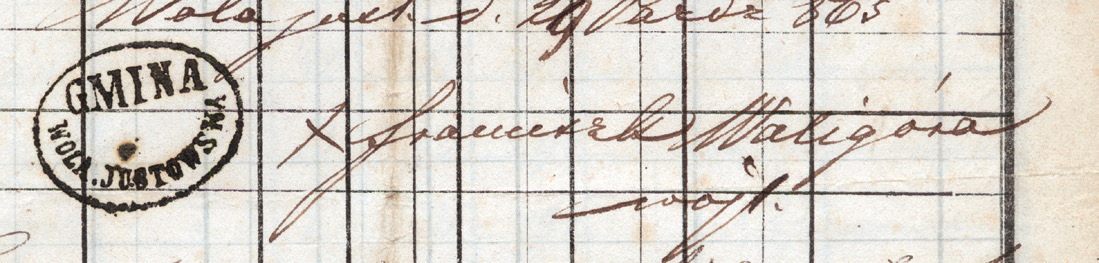 Wola just. d. 29 Paźdz 865
GMINA
WOLA JUSTOWSKA
X Franciszek Waligóra
wójt.